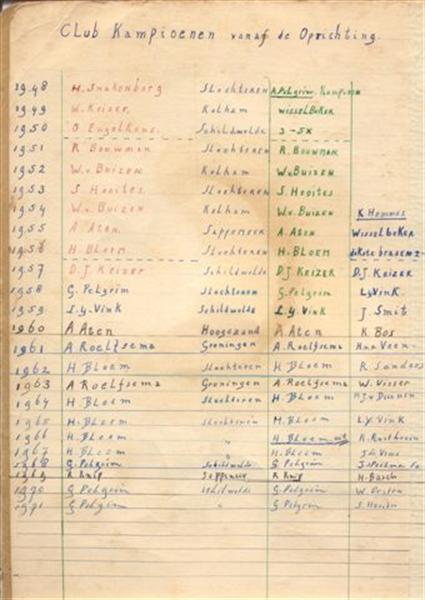 Club Kampioenen vanaf de Oprichting.
1948 H. Snakenborg Slochteren A. Pelgrim. Kampioen
1949 W. Keizer Kolham wisselbeker
1950 O. Engelkens. Schildwolde 3-5x
1951 R Bouwman Slochteren R. Bouwman
1952 W.v Buizen Kolham W.v Buizen
1953 S. Hooites Slochteren S Hooites
1954 W.v Buizen Kolham W.v Buizen K Hommes
1955 A. Aten Sappemeer A. Aten Wisselbeker
1956 H. Bloem Slochteren H. Bloem
1957 D.J. Keizer Schildwolde D.J. Keizer D.J. Keizer
1958 G. Pelgrim Slochteren G. Pelgrim L.y Vink.
1959 L.y. Vink Schildwolde L.y. Vink J. Smit
1960 A Aten Hoogezand A Aten K Bos
1961 A. Roelfsema Groningen A. Roelfsema H.v.v Veen
1962 H. Bloem Slochteren H Bloem R Sanders
1963 A Roelfsema Groningen A Roelfsema W. Visser
1964 H. Bloem Slochteren H. Bloem
1965 H. Bloem Slochteren H. Bloem L.y Vink
1966 H. Bloem " H Bloem
1967 H Bloem " H. Bloem
1968 G. Pelgrim Schildwolde G Pelgrim
1969 R Knip Sappemeer R Knip H. Bosch
1970 G. Pelgrim Schildwolde G. Pelgrim
1971 G. Pelgrim " G. Pelgrim